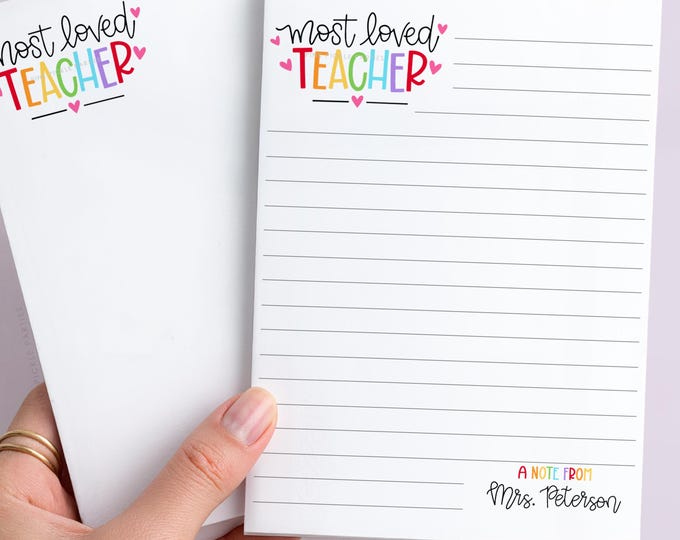 most loved
TEACHER
most loved
TEACHER
A NOTE FROM
Mrs. Peterson